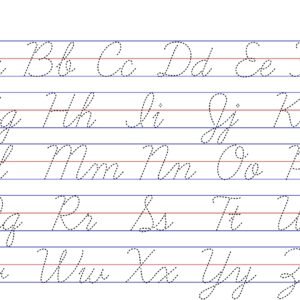 Bb Cc Dd Ee
g Hh Ii Jj K
l Mm Nn Oo P
q Rr Ss Tt U
Ww Xx Yy Z